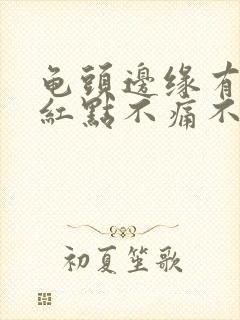 龟頭邊缘有
紅點不痛不
初夏笙歌